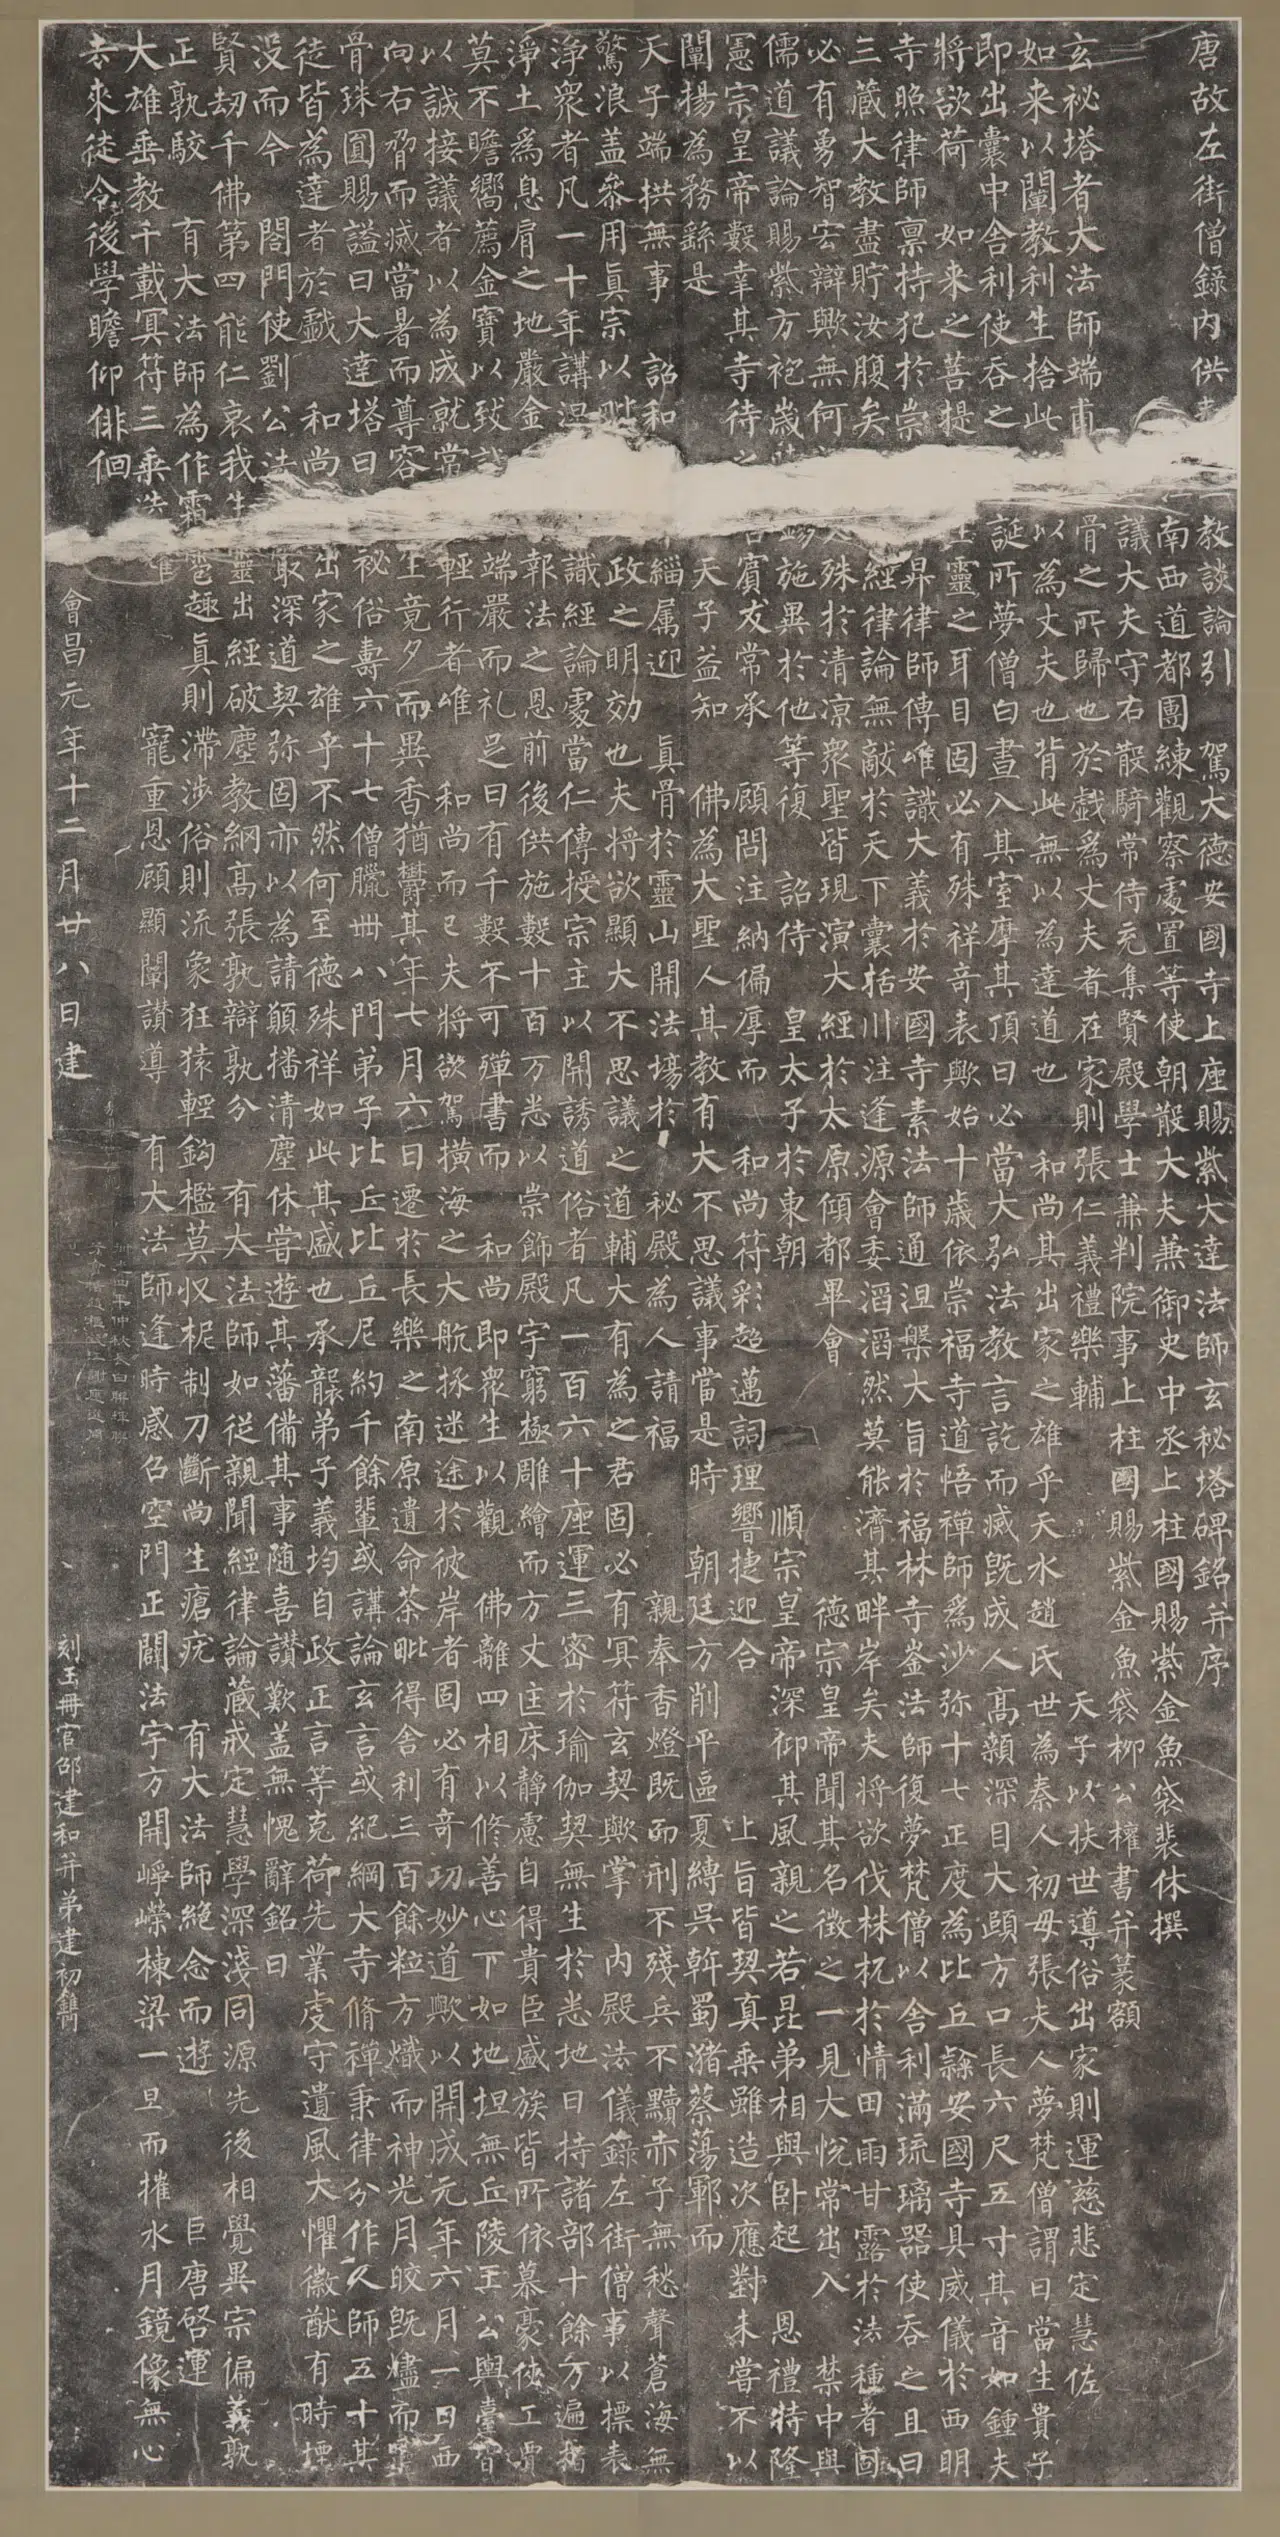 唐故左街僧録内供 教談論引 駕大德安國寺上座賜紫大達法師玄秘塔碑銘并序
南西道都團練觀察處置等使朝散大夫兼御史中丞上柱國賜紫金魚袋裴休撰
議大夫守右散騎常侍充集賢殿學士兼判院事上柱國賜紫金魚袋柳公權書并篆額
玄祕塔者大法師端甫 骨之所歸也於戲為丈夫者在家則張仁義禮樂輔 天子以扶世導俗出家則運慈悲定慧佐
如来以闡教利生捨此 以為丈夫也背此無以為達道也 和尚其出家之雄乎天水趙氏世為秦人初母張夫人夢梵僧謂曰當生貴子
即出囊中舍利使吞之 誕所夢僧白晝入其室摩其頂曰必當大弘法教言訖而滅既成人高顙深目大頤方口長六尺五寸其音如鍾夫
將欲荷 如来之菩提 靈之耳目固必有殊祥奇表歟始十歲依崇福寺道悟禪師為沙弥十七正度為比丘隸安國寺具威儀於西明
寺照律師稟持犯於崇 昇律師傳唯識大義於安國寺素法師通涅槃大旨於福林寺崟法師復夢梵僧以舍利滿琉璃器使吞之且曰
三藏大教盡貯汝腹矣 經律論無敵於天下囊括川注逢源會委滔滔然莫能濟其畔岸矣夫將欲伐株杌於情田雨甘露於法種者固
必有勇智宏辯歟無何 殊於清凉衆聖皆現演大經於太原傾都畢會 德宗皇帝聞其名徵之一見大悅常出入 禁中與
儒道議論賜紫方袍歲 施異於他等復 詔侍 皇太子於東朝 順宗皇帝深仰其風親之若昆弟相與卧起 恩禮特隆
憲宗皇帝數幸其寺待 賓友常承 顧問注納偏厚而 和尚符彩超邁詞理響捷迎合 上旨皆契真乘雖造次應對未嘗不以
闡揚為務繇是 天子益知 佛為大聖人其教有大不思議事當是時 朝廷方削平區夏縛吳斡蜀瀦蔡蕩鄆而
天子端拱無事 詔和 緇属迎 真骨於靈山開法場於 秘殿為人請福 親奉香燈既而刑不殘兵不黷赤子無愁聲蒼海無
驚浪盖參用真宗以毗 政之明効也夫將欲顯大不思議之道輔大有為之君固必有冥符玄契歟掌 内殿法儀錄左街僧事以標表
淨衆者凡一十年講涅 識經論處當仁傳授宗主以開誘道俗者凡一百六十座運三密於瑜伽契無生於悉地日持諸部十餘万遍指
淨土為息肩之地嚴金 報法之恩前後供施數十百万悉以崇飾殿宇窮極雕繪而方丈匡床靜慮自得貴臣盛族皆所依慕豪俠工賈
莫不瞻嚮薦金寶以致 端嚴而礼足日有千數不可殫書而 和尚即衆生以觀 佛離四相以修善心下如地坦無丘陵王公輿臺皆
以誠接議者以為成就常 輕行者唯 和尚而已夫將欲駕橫海之大航拯迷途於彼岸者固必有奇功妙道歟以開成元年六月一日西
向右脅而滅當暑而尊容 生竟夕而異香猶欝其年七月六日遷於長樂之南原遺命荼毗得舍利三百餘粒方熾而神光月皎既燼而靈
骨珠圓賜謚曰大達塔曰 祕俗壽六十七僧臘卌八門弟子比丘比丘尼約千餘輩或講論玄言或紀綱大寺脩禪秉律分作人師五十其
徒皆為達者於戲 和尚 出家之雄乎不然何至德殊祥如此其盛也承襲弟子義均自政正言等克荷先業虔守遺風大懼徽猷有時堙
没而今 閤門使劉公法 取深道契弥固亦以為請願播清塵休嘗遊其藩備其事随喜讚歎盖無愧辭銘曰
賢劫千佛第四能仁哀我生靈出經破塵教綱高張孰辯孰分 有大法師如從親聞經律論藏戒定慧學深淺同源先後相覺異宗偏義孰
正孰駮 有大法師為作霜雹趣真則滯涉俗則流象狂猿輕鈎檻莫収柅制刀斷尚生瘡疣 有大法師絕念而遊 巨唐啓運
大雄垂教千載冥符三乘 寵重恩顧顯闡讚導 有大法師逢時感召空門正闢法宇方開崢嶸棟梁一旦而摧水月鏡像無心
去來徒令後學瞻仰徘徊
會昌元年十二月廿八日建 刻玉冊官邵建和并弟建初鐫